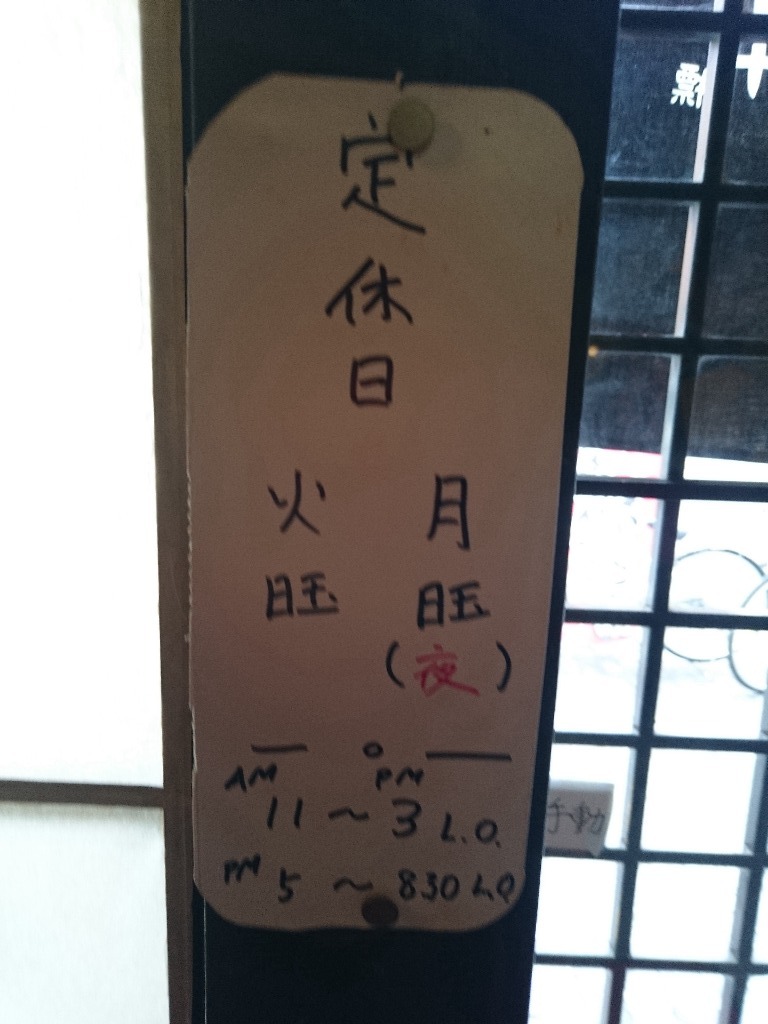 定休日
月旺
(夜)
火旺
AM 11 ~ PM 3 L.O.
PM 5 ~ 830 L.O
手動